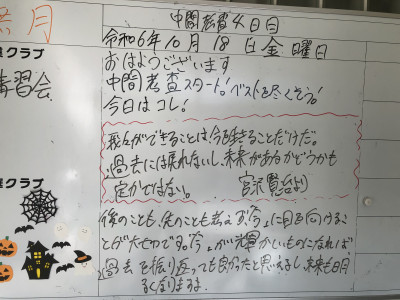 無月
クラブ
講習会
クラブ
中間考査4日目
令和6年10月18日金曜日
おはようございます
中間考査スタート!ベストを尽くそう!
今日はコレ!
我々ができることは、今を生きることだけだ。
過去には戻れないし、未来があるかどうかも
定かではない。 宮沢賢治より
後のことも、先のことも考えず"今"に目を向けるこ
とが大切です。"今"が輝かしいものになれば
過去を振り返っても良かったと思えるし、未来も明
るくなりますよ。